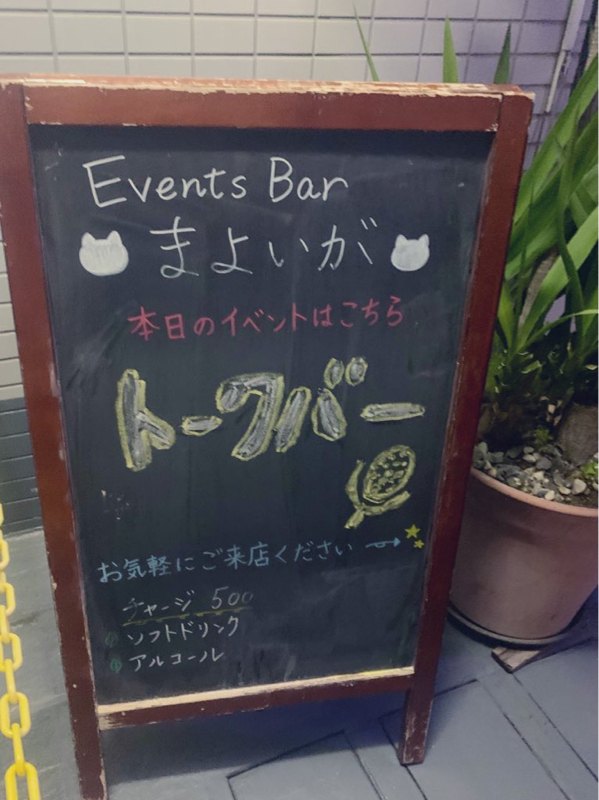 Events Bar
まよいが
本日のイベントはこちら
トークバー
お気軽にご来店ください
チャージ 500
ソフトドリンク
アルコール